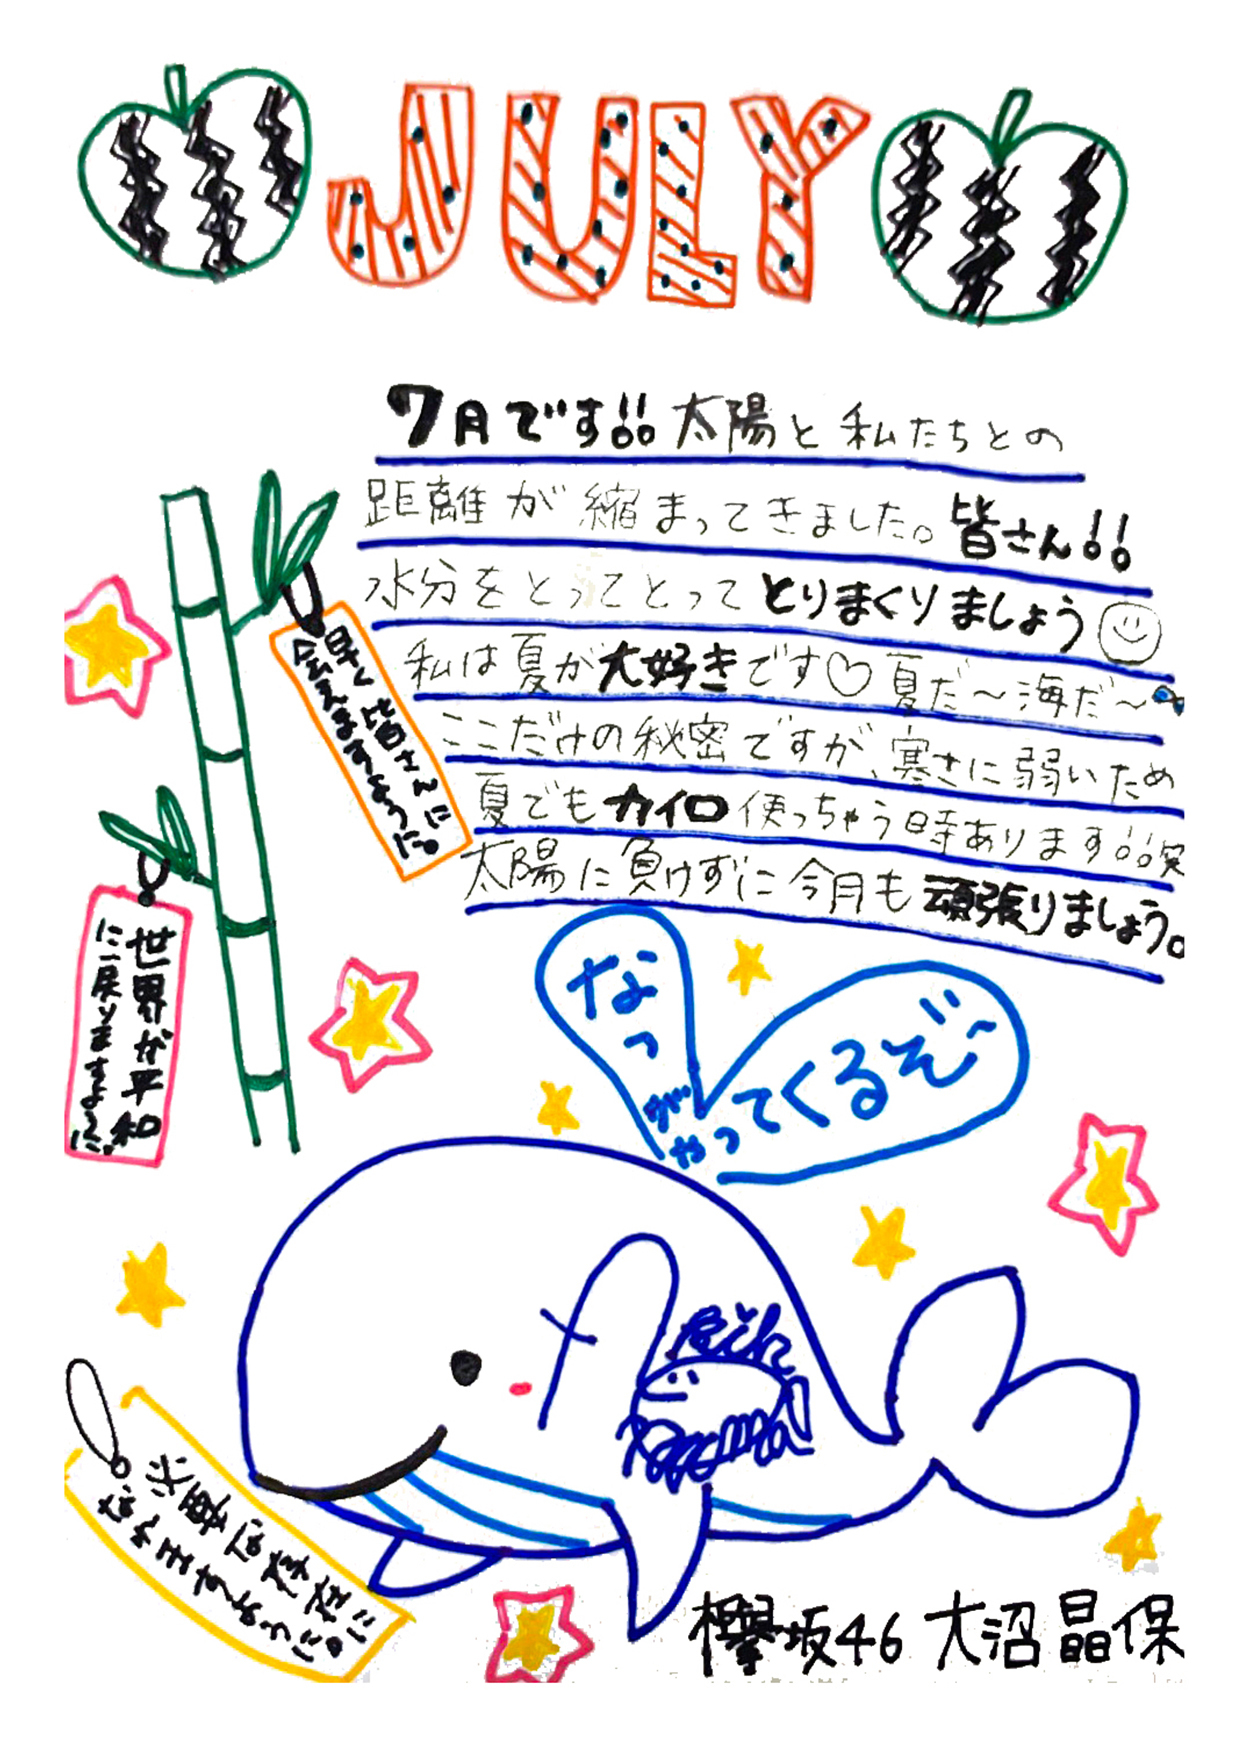 JULY
7月です!! 太陽と私たちとの
距離が縮まってきました。皆さん!!
水分をとってとってとりまくりましょう
私は夏が大好きです♡夏だ〜海だ〜
ここだけの秘密ですが、寒さに弱いため
夏でもカイロ使っちゃう時あります!!笑
太陽に負けずに今月も頑張りましょう。
早く皆さんに
会えますように。
世界が平和
に戻りますように。
なつ
が
やってくるぞ〜
必要な存在に
なれますように。
欅坂46 大沼晶保